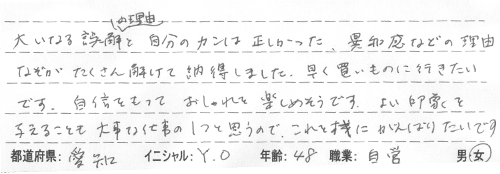 の理由
大いなる誤解と自分のカンは正しかった、異和感などの理由
なぞがたくさん解けて納得しました。早く買いものに行きたい
です。自信をもっておしゃれを楽しめそうです。よい印象を
与えることも大事な仕事の1つと思うので、これを機にがんばりたいです
都道府県: 愛知 イニシャル: Y.O 年齢: 48 職業: 自営 男・女